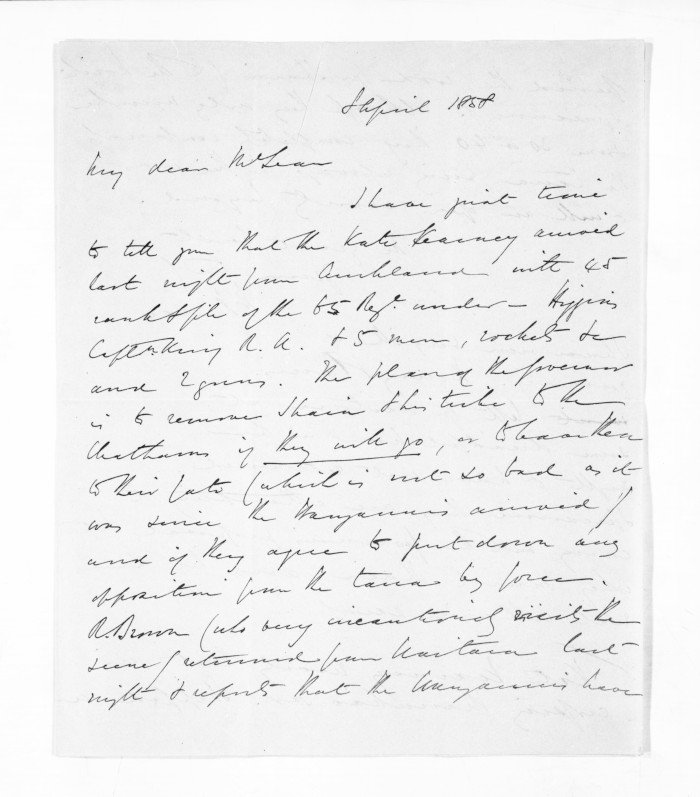 8 April 1858
My dear McLean
I have just time
to tell you that the Kate Kearney arrived
last night from Auckland with 45
rank & file of the 65 Regt. under - Higgins
Captn King R. A. & 5 men, rockets &c
and 2 guns. The plan of the Governor
is to remove Ihaia & his tribe to the
Chathams if they will go, or to leave them
to their fate (which is not so bad as it
was since the Wanganuis arrived)
and if they agree to put down any
opposition from the taua by force.
R. Brown (who very incautiously visits the
scene) returned from Waitara last
night & reports that the Wanganuis have